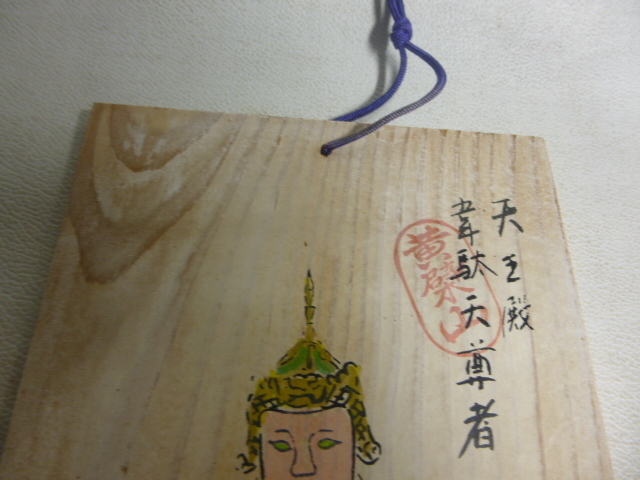 天王殿
韋駄天尊者
黄檗山